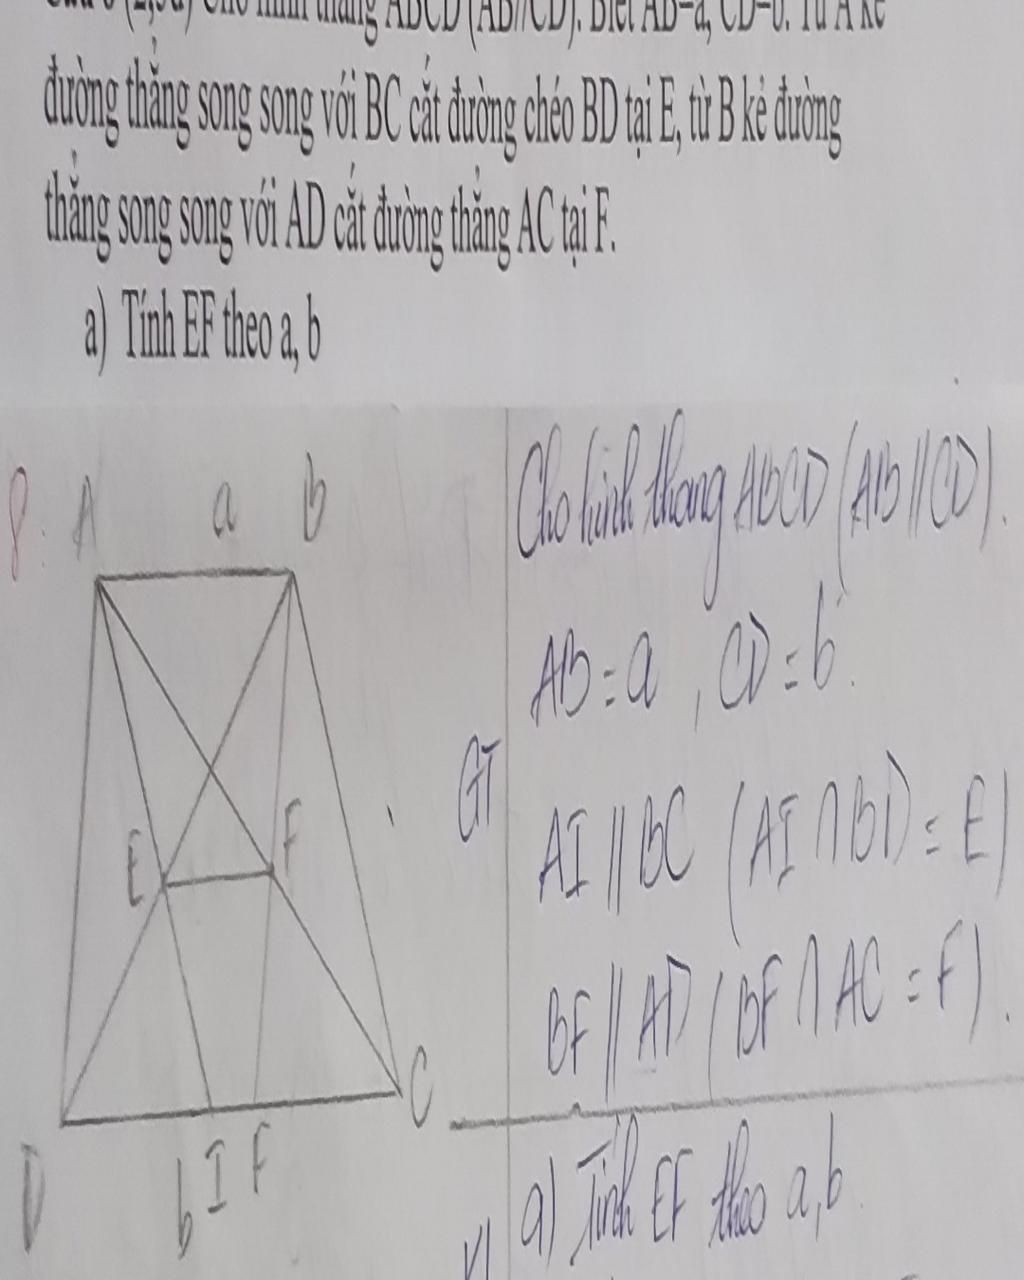 Cho hình thang ABCD (AB//CD). Biết AB=a, CD=b. Từ A kẻ
đường thẳng song song với BC cắt đường chéo BD tại E, từ B kẻ đường
thẳng song song với AD cắt đường thẳng AC tại F.
a) Tính EF theo a, b
8.
A a b
E F
D b I F C
Cho hình thang ABCD (AB // CD).
AB = a, CD = b.
GT
AI // BC (AI ∩ BD = E)
BF // AD (BF ∩ AC = F).
a) Tính EF theo a, b